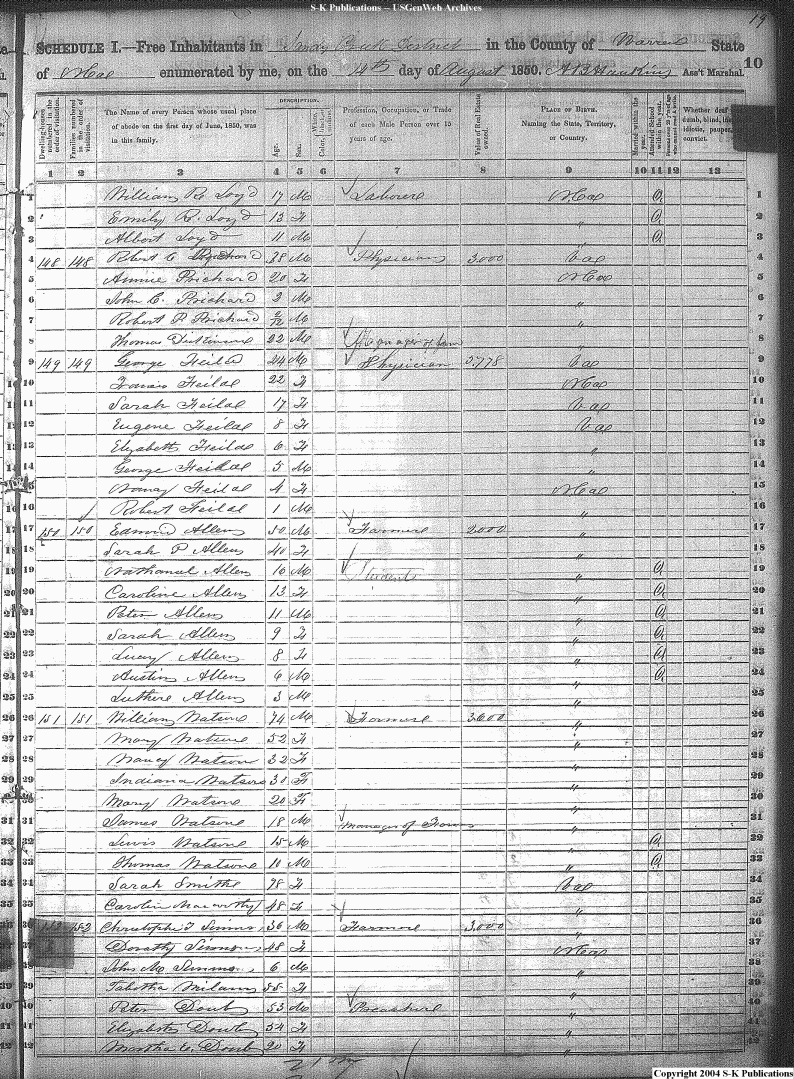 S-K Publications – USGenWeb Archives
19
SCHEDULE I.—Free Inhabitants in Sandy Creek District in the County of Warren State
of N Ca enumerated by me, on the 14th day of August 1850. Ass't Marshal. 10
DESCRIPTION.
Dwelling-houses numbered in the order of visitation. Families numbered in the order of visitation. The Name of every Person whose usual place of abode on the first day of June, 1850, was in this family. Age. Sex. Color, Profession, Occupation, or Trade of each Male Person over 15 years of age. Value of Real Estate owned. PLACE OF BIRTH. Naming the State, Territory, or Country. Married within the year. Attended School within the year. Whether deaf dumb, blind, idiotic, pauper, convict.
1 2 3 4 5 6 7 8 9 10 11 12 13
1 William R Loyd 17 M Laborer N Ca 1
2 Emily R. Loyd 13 F " 2
3 Albert Loyd 11 M " 3
4 148 148 Robert C Prichard 38 M Physician 3000 Va 4
5 Annie Prichard 20 F N Ca 5
6 John C. Prichard 2 M " 6
7 Robert P Prichard 2/12 M " 7
8 Thomas 22 M Manager of farm " 8
9 149 149 George Feild 24 M Physician 5,778 Va 9
10 Feild 22 F N Ca 10
11 Sarah Feild 17 F Va 11
12 Eugene Feild 8 F Va 12
13 Elizabeth Feild 6 F " 13
14 George Feild 5 M " 14
15 Feild 4 F N Ca 15
16 Robert Feild 1 M " 16
17 150 150 Edmond Allen 50 M Farmer 2000 " 17
18 Sarah P Allen 40 F " 18
19 Nathanael Allen 16 M Student " 19
20 Caroline Allen 13 F " 20
21 Peter Allen 11 M " 21
22 Sarah Allen 9 F " 22
23 Lucy Allen 8 F " 23
24 Austin Allen 6 M " 24
25 Luther Allen 3 M " 25
26 151 151 William Watson 74 M Farmer 3600 " 26
27 Mary Watson 52 F " 27
28 Nancy Watson 32 F " 28
29 Indiana Watson 30 F " 29
30 Mary Watson 20 F " 30
31 James Watson 18 M Manager of Farm " 31
32 Lewis Watson 15 M " 32
33 Thomas Watson 10 M " 33
34 Sarah Smith 78 F Va 34
35 Caroline 48 F " 35
36 152 Christopher T Simms 36 M Farmer 3,000 " 36
37 Dorothy Simms 48 F N Ca 37
38 John M Simms 6 M " 38
39 Tabitha Milam 55 F " 39
40 Peter Doub 53 M " 40
41 Elizabeth Doub 54 F " 41
42 Martha E. Doub 20 F " 42
Copyright 2004 S-K Publications